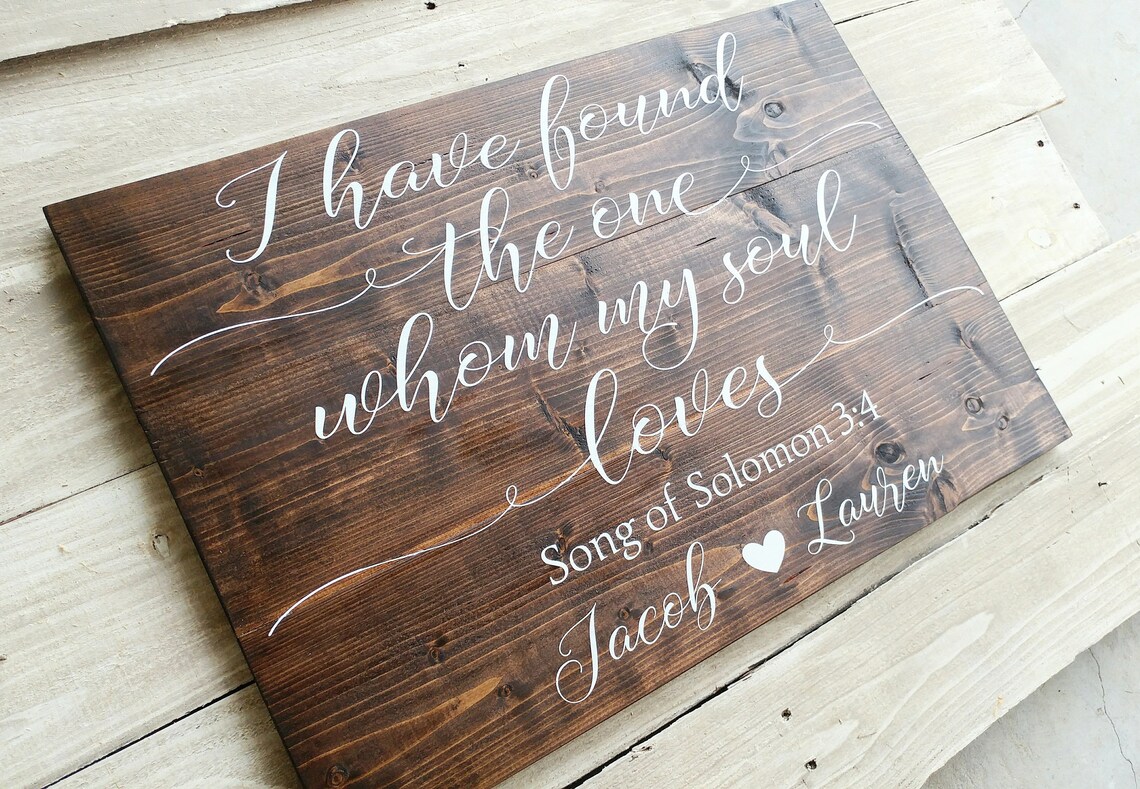 I have found
the one
whom my soul
loves
Song of Solomon 3:4
Jacob ♥ Lauren